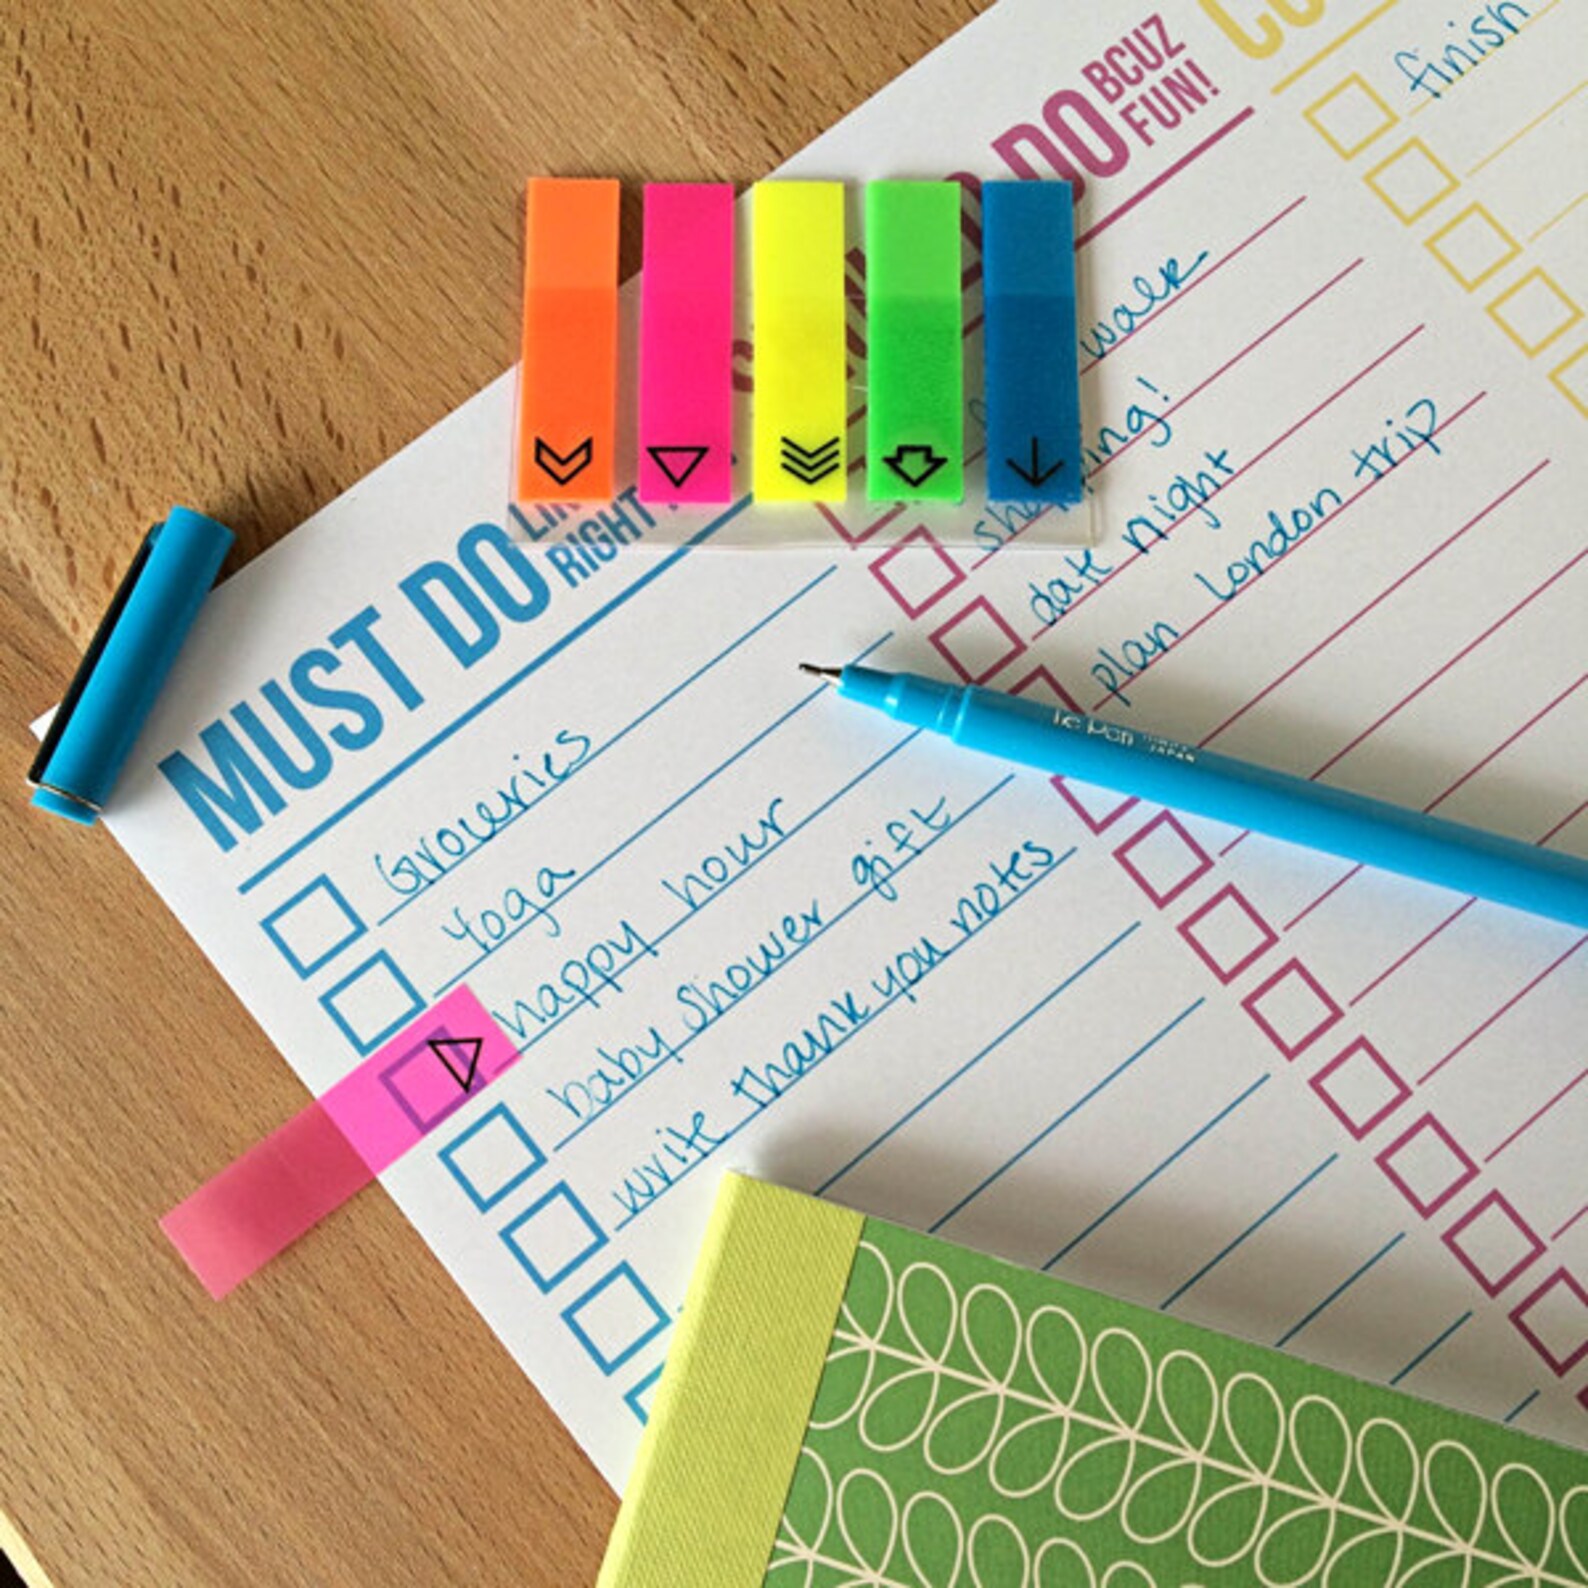 MUST DO
RIGHT
Groceries
Yoga
happy hour
baby shower gift
write thank you notes
DO
BCUZ
FUN!
walk
date night
plan london trip
finish
Le Pen
JAPAN